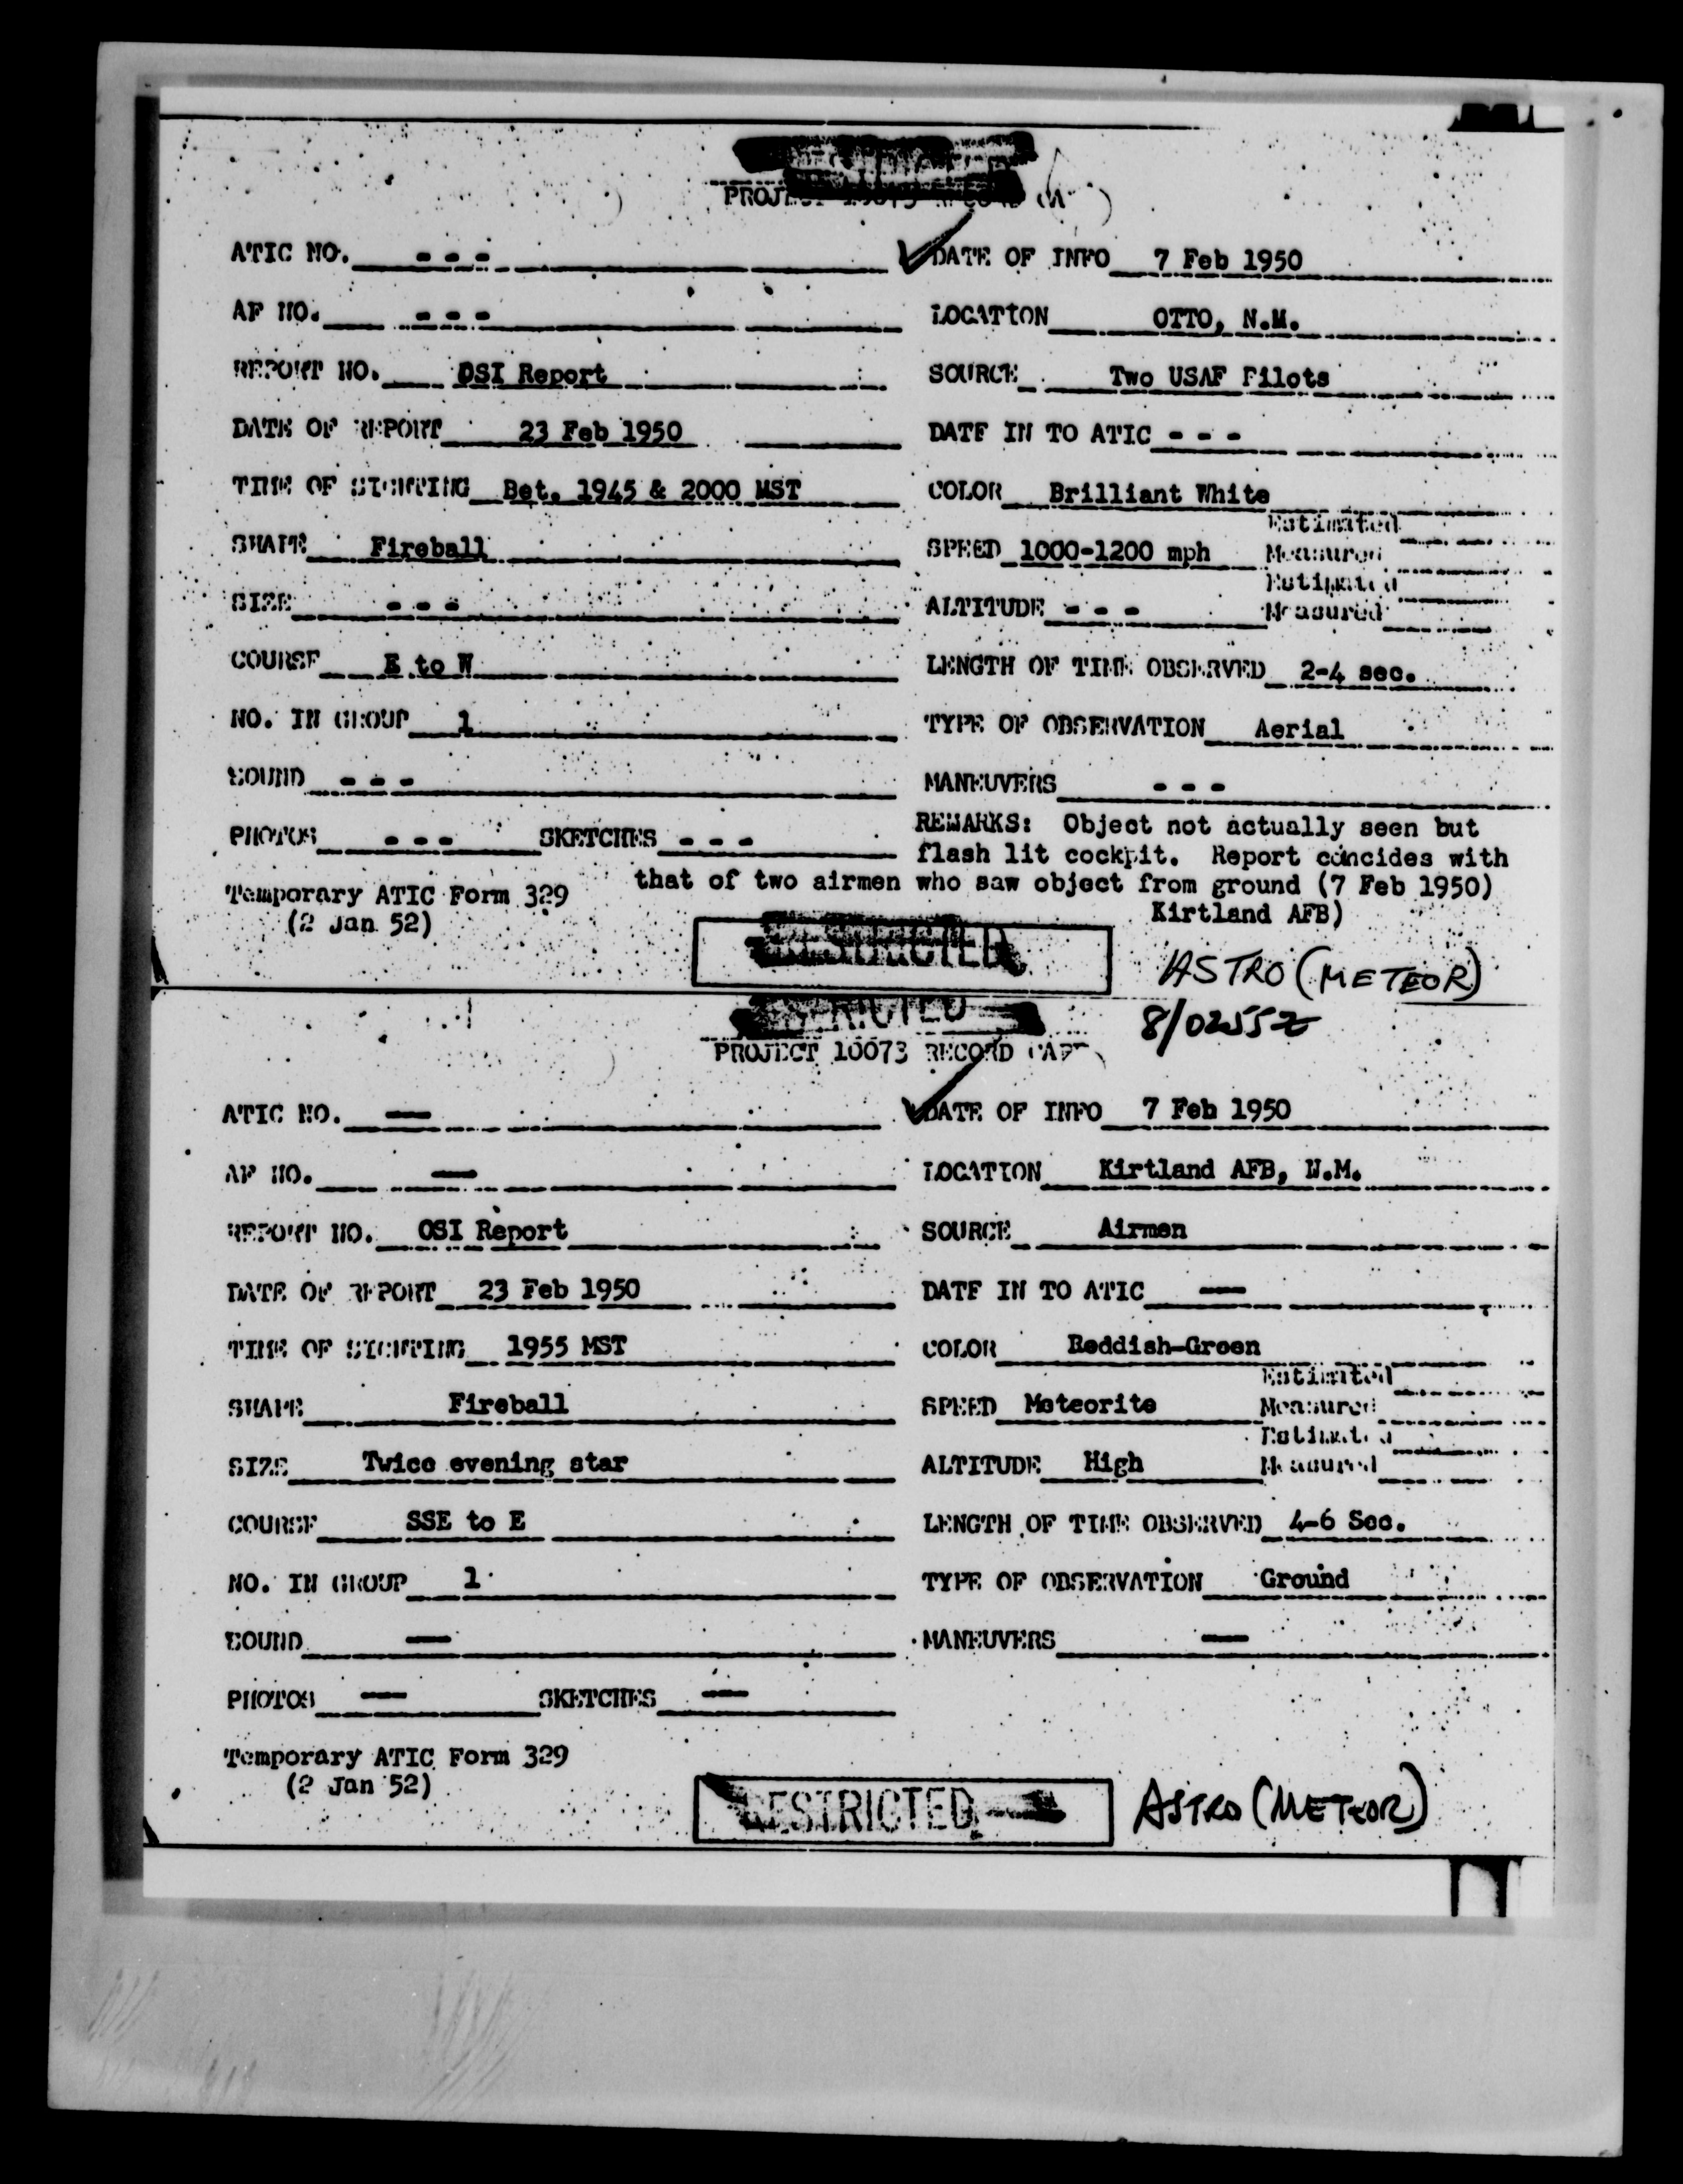 PROJECT 10073 RECORD
ATIC NO. - - - DATE OF INFO 7 Feb 1950
AF NO. - - - LOCATION OTTO, N.M.
REPORT NO. OSI Report SOURCE Two USAF Pilots
DATE OF REPORT 23 Feb 1950 DATE IN TO ATIC - - -
TIME OF SIGHTING Bet. 1945 & 2000 MST COLOR Brilliant White
Estimated
SHAPE Fireball SPEED 1000-1200 mph Measured
Estimated
SIZE - - - ALTITUDE - - - Measured
COURSE E to W LENGTH OF TIME OBSERVED 2-4 sec.
NO. IN GROUP 1 TYPE OF OBSERVATION Aerial
SOUND - - - MANEUVERS - - -
REMARKS: Object not actually seen but
PHOTOS - - - SKETCHES - - - flash lit cockpit. Report concides with
that of two airmen who saw object from ground (7 Feb 1950)
Temporary ATIC Form 329 Kirtland AFB)
(2 Jan 52)
RESTRICTED
ASTRO (METEOR)
8/0255Z
RESTRICTED
PROJECT 10073 RECORD CARD
ATIC NO. — DATE OF INFO 7 Feb 1950
AF NO. — LOCATION Kirtland AFB, N.M.
REPORT NO. OSI Report SOURCE Airmen
DATE OF REPORT 23 Feb 1950 DATE IN TO ATIC —
TIME OF SIGHTING 1955 MST COLOR Reddish-Green
Estimated
SHAPE Fireball SPEED Meteorite Measured
Estimated
SIZE Twice evening star ALTITUDE High Measured
COURSE SSE to E LENGTH OF TIME OBSERVED 4-6 Sec.
NO. IN GROUP 1 TYPE OF OBSERVATION Ground
SOUND — MANEUVERS —
PHOTOS — SKETCHES —
Temporary ATIC Form 329
(2 Jan 52)
RESTRICTED
ASTRO (METEOR)